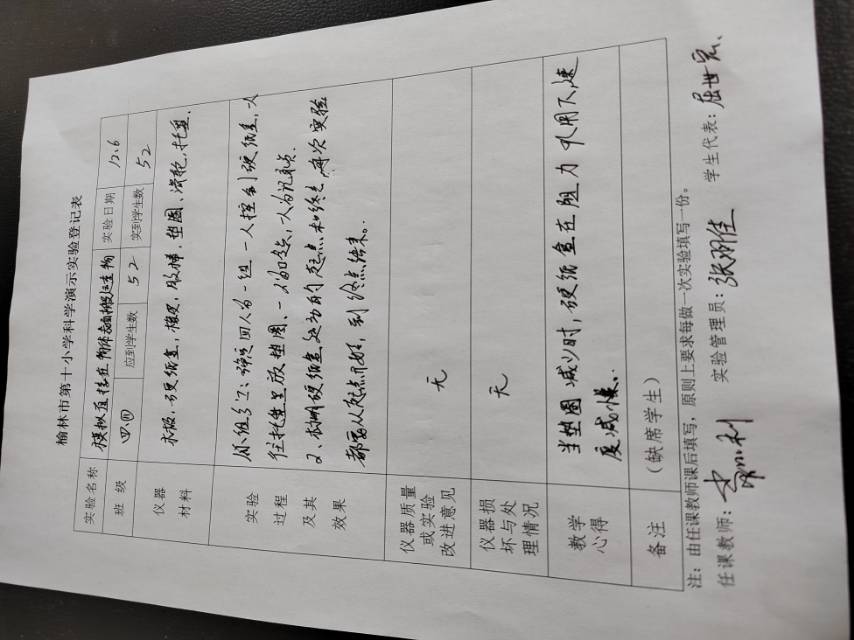 榆林市第十小学科学演示实验登记表
实验名称 模拟直接在物体表面搬运重物 实验日期 12.6
班级 四.四 应到学生数 52 实到学生数 52
仪器材料 木板、硬纸盒、橡皮、垫圈、滑轮、托盘、
实验过程及其效果 小组分工:确定四人为一组 一人控制硬纸盒,一人
往托盘里放垫圈、一人,一人为记录员
2、硬纸盒运动的起点和终点,每次实验
都要从起点开始,到终点结束。
仪器质量或实验改进意见 无
仪器损坏与处理情况 无
教学心得 当垫圈减少时,硬纸盒在阻力作用下,速
度减慢。
备注 (缺席学生)
注:由任课教师课后填写,原则上要求每做一次实验填写一份。
任课教师: 实验管理员:张翊佳 学生代表:屈世宏